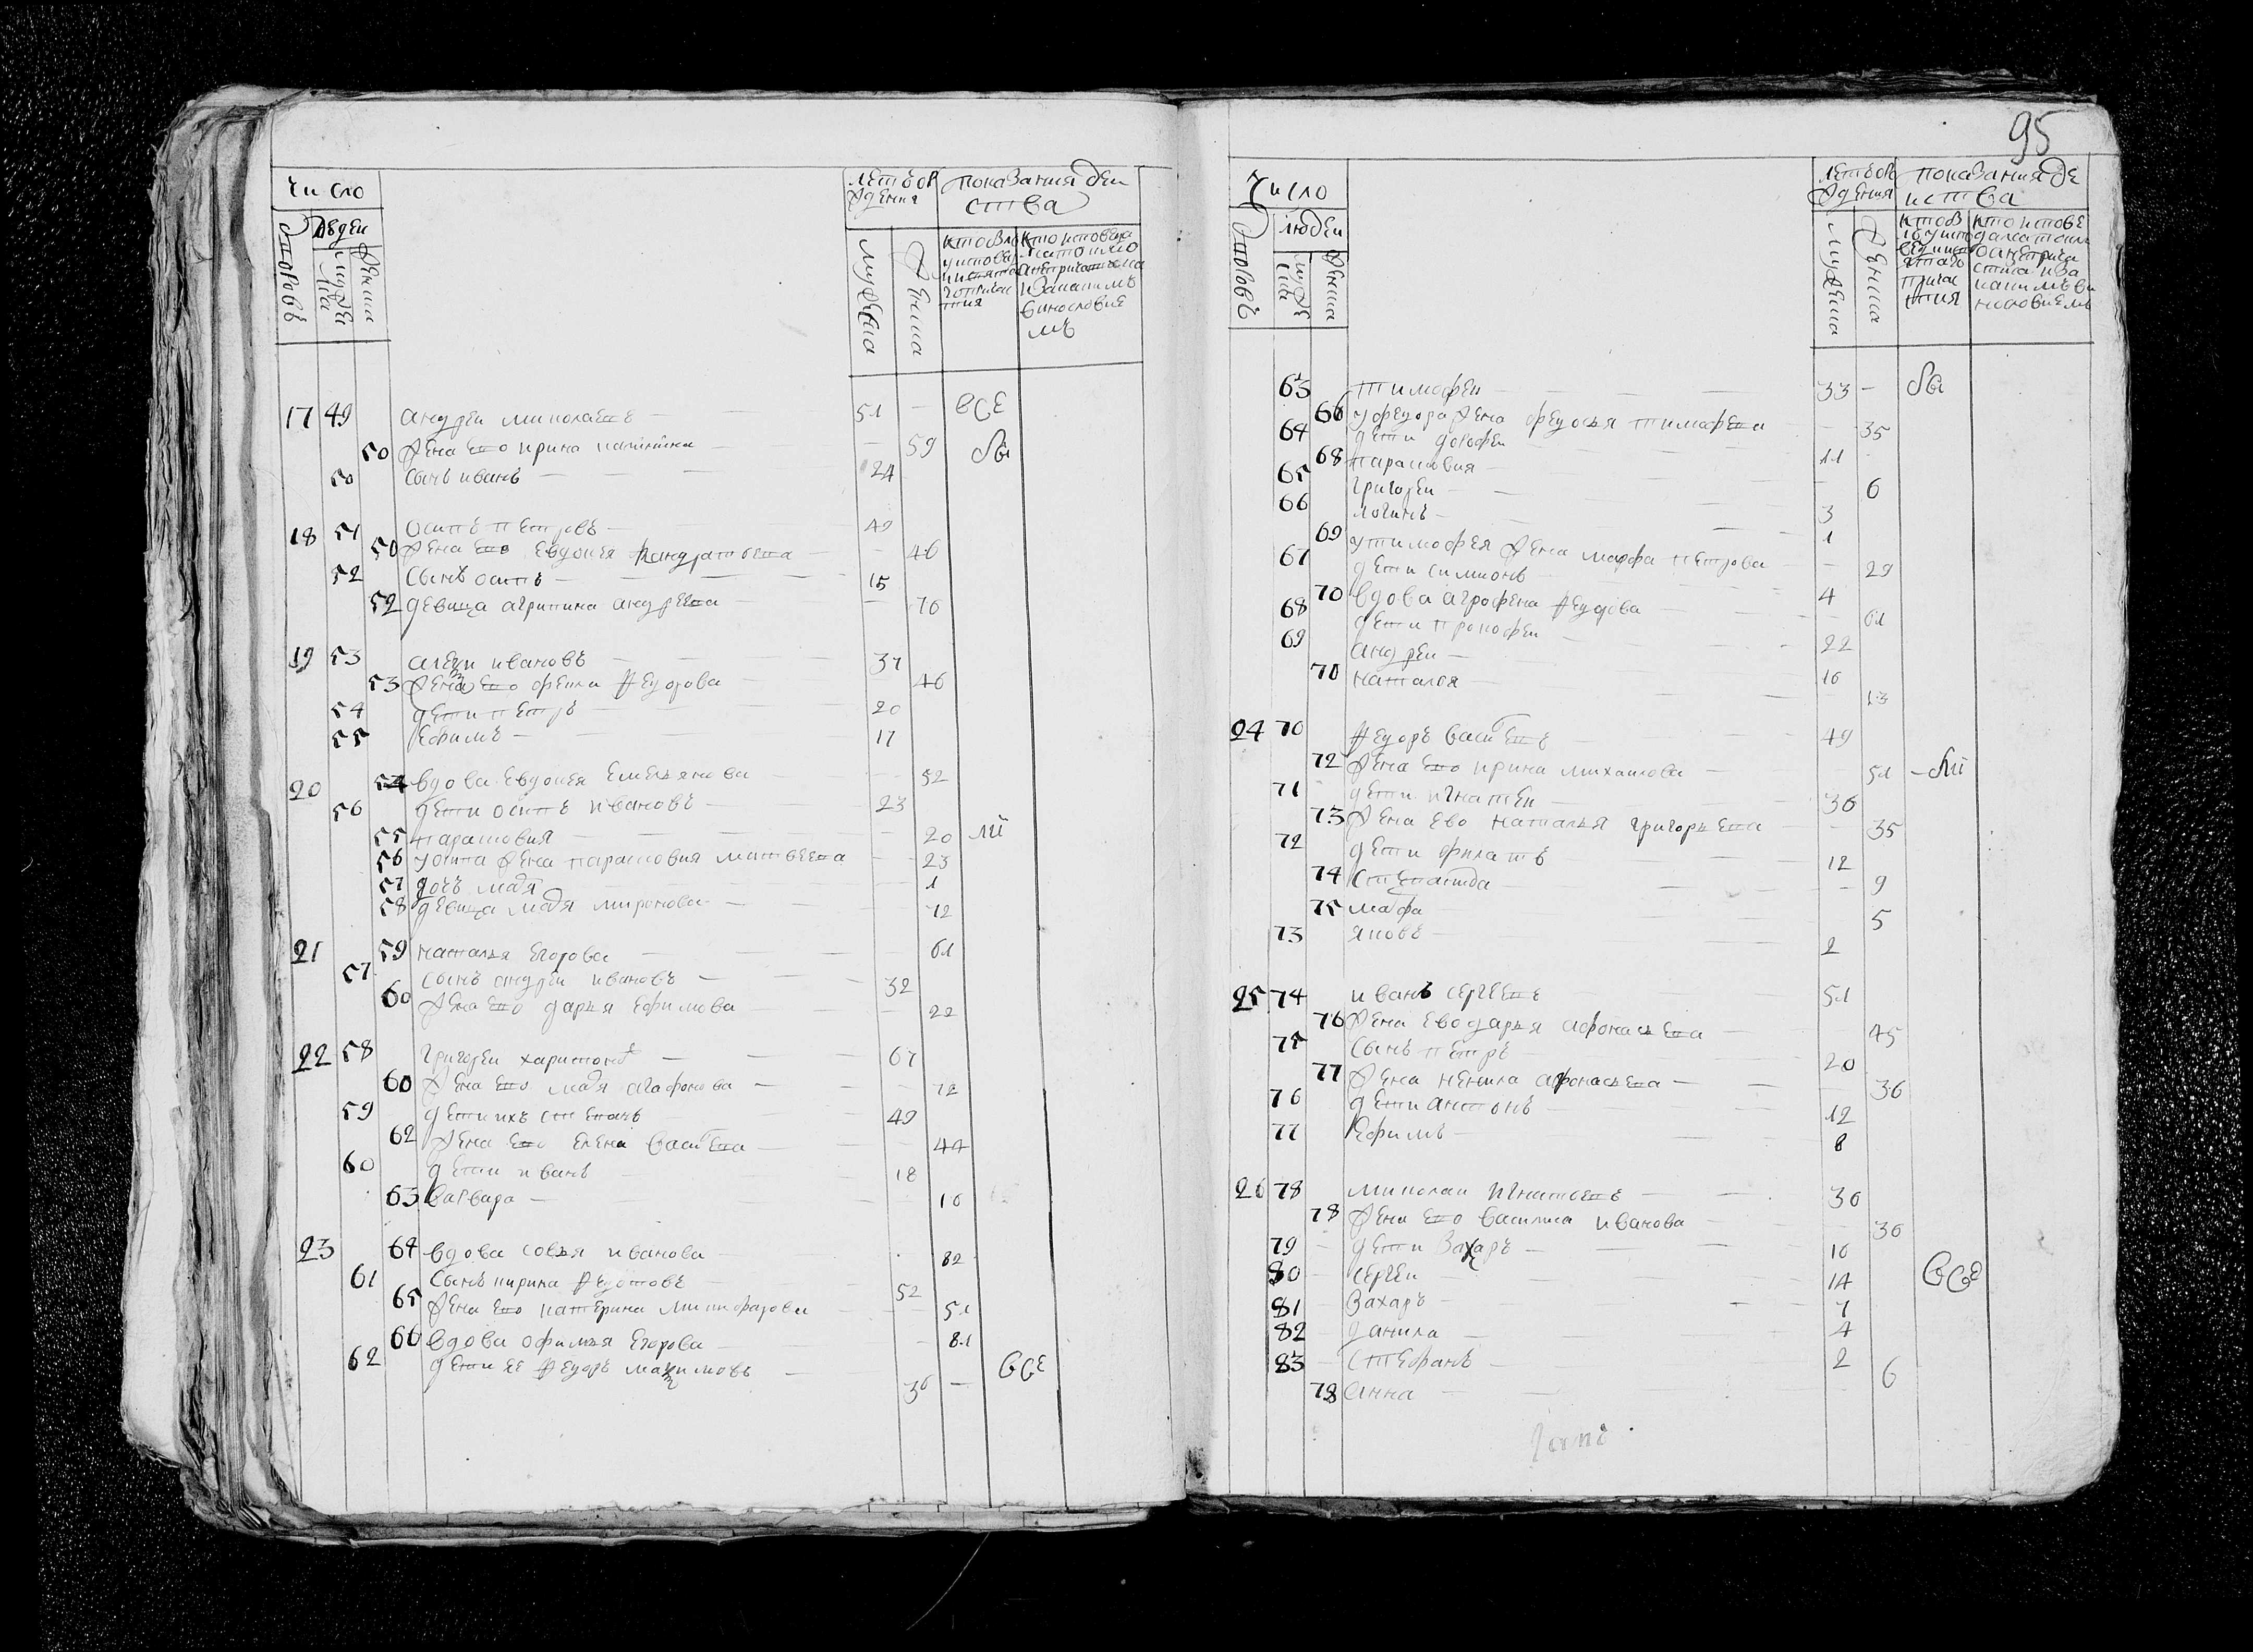 95
число
людеи
дворовъ
мужеи
ска
женска
летъ от рождения
мужеска
женска
показания деиства
17 49 андреи миколаевъ 51 — все
50 жена ево ирина никитина — 59 бы
50 сынъ иванъ 24
18 51 осипъ петровъ 49
50 жена ево евдокея кандратьева — 46
52 сынъ осипъ 15
52 девица агрипина андреева — 76
19 53 алексеи ивановъ 37
53 жена ево фекла феудорова 46
54 дети петръ 20
55 ефимъ 17
20 54 вдова евдокея емельянова — 52
56 дети осипъ ивановъ 23
55 парасковия — 20 ли
56 у осипа жена парасковия матвеева — 23
57 дочь марья — 1
58 девица марья миронова — 72
21 59 наталья егорова 61
57 сынъ андреи ивановъ 32
60 жена ево дарья ефимова — 22
22 58 григореи харитоновъ 67
60 жена ево марья агафонова — 72
59 дети ихъ степанъ 49
62 жена ево елена васильева — 44
60 дети иванъ 18
63 варвара 16
23 64 вдова софья иванова 82
61 сынъ кирила феудотовъ 52
65 жена ево катерина никифорова 51
66 вдова офимья егорова — 81
62 дети ее феудоръ максимовъ 36 — все
число
людеи
дворовъ
женска
летъ от рождения
мужеска
женска
показания деиства
63 тимофеи 33 — бы
66 у феудора жена федосья тимофеева — 35
64 дети дорофеи 11
68 парасковия — 6
65 григореи 3
66 логинъ 1
69 у тимофея жена марфа петрова — 29
67 дети симионъ 4
70 вдова агрофена феудорова — 61
68 дети прокофеи 22
69 андреи 16
70 наталья 13
24 70 феудоръ васильевъ 49
72 жена ево ирина михаилова 51 — ли
71 дети игнатеи 36
73 жена ево наталья григорьева — 35
72 дети филатъ 12
74 степанида — 9
75 марфа 5
73 яковъ 2
25 74 иванъ сергеевъ 51
76 жена ево дарья афонасьева 45
75 сынъ петръ 20
77 жена ненила афонасьева — 36
76 дети антонъ 12
77 ефимъ 8
26 78 миколаи игнатьевъ 36
78 жена ево василиса иванова 36
79 дети захаръ 16
80 сергеи 14 все
81 захаръ 7
82 данила 4
83 стефанъ 2
78 анна 6